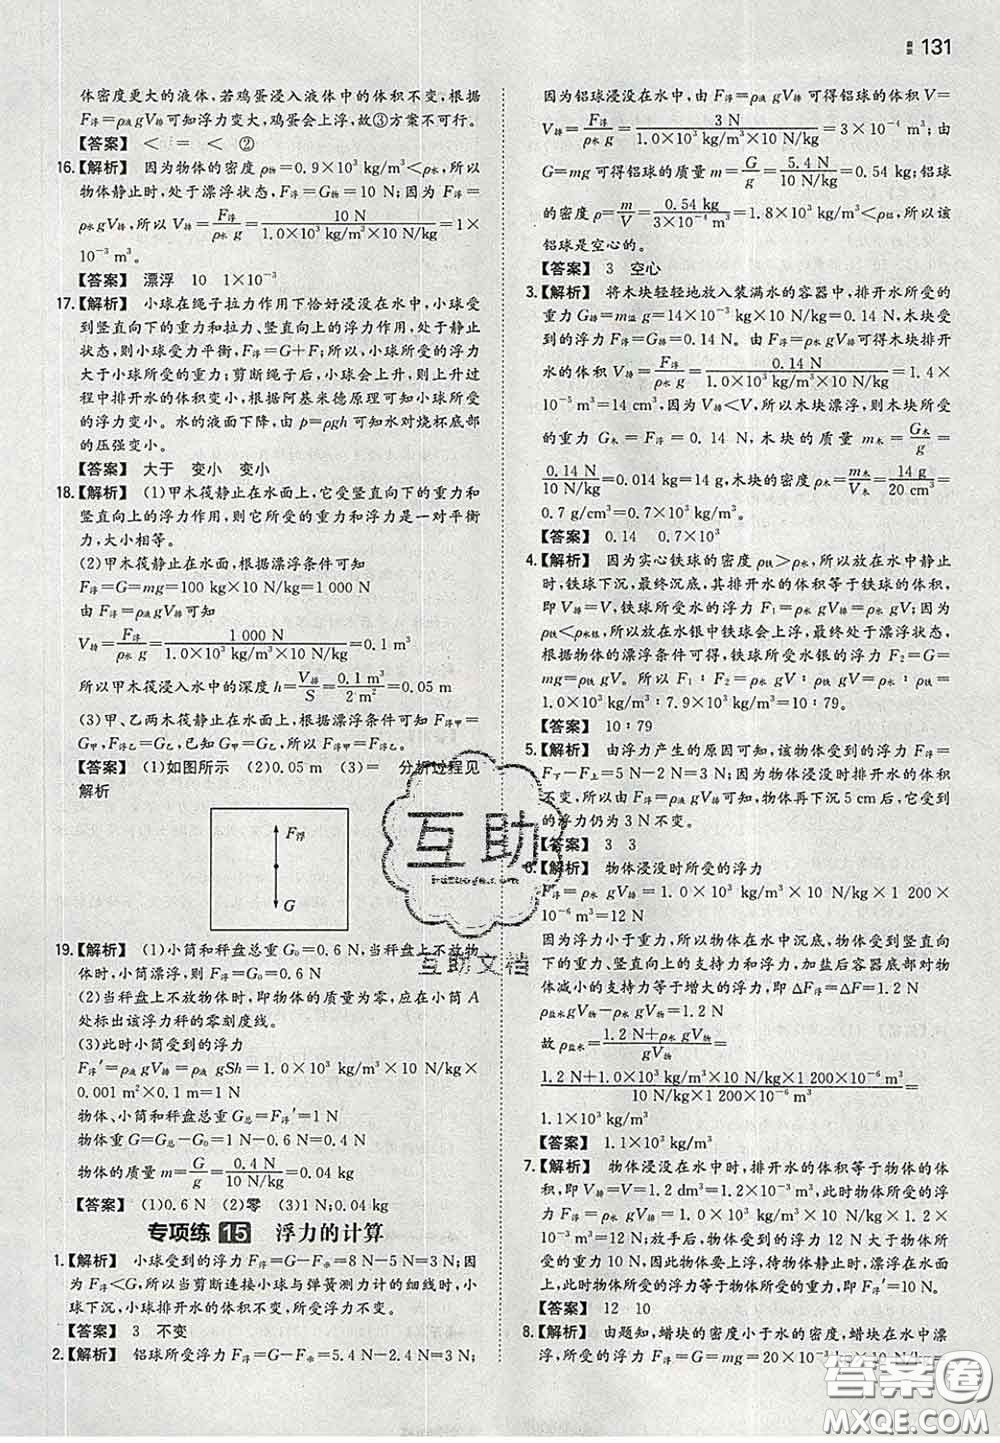 131
体密度更大的液体,若鸡蛋浸入液体中的体积不变,根据
F浮=ρ液 gV排可知浮力变大,鸡蛋会上浮,故③方案不可行。
【答案】 < = < ②
16.【解析】 因为物体的密度 ρ物=0.9×10³ kg/m³<ρ水,所以
物体静止时,处于漂浮状态,F浮=G物=10 N;因为 F浮=
ρ水 gV排,所以 V排=F浮/(ρ水 g)=10 N/(1.0×10³ kg/m³×10 N/kg)=1×
10⁻³ m³。
【答案】 漂浮 10 1×10⁻³
17.【解析】 小球在绳子拉力作用下恰好浸没在水中,小球受
到竖直向下的重力和拉力、竖直向上的浮力作用,处于静止
状态,则小球受力平衡,F浮=G+F;所以,小球所受的浮力
大于小球所受的重力;剪断绳子后,小球会上升,则上升过
程中排开水的体积变小,根据阿基米德原理可知小球所受
的浮力变小。水的液面下降,由 p=ρgh 可知水对烧杯底部
的压强变小。
【答案】 大于 变小 变小
18.【解析】 (1)甲木筏静止在水面上,它受竖直向下的重力和
竖直向上的浮力作用,则它所受的重力和浮力是一对平衡
力,大小相等。
(2)甲木筏静止在水面,根据漂浮条件可知
F浮=G=mg=100 kg×10 N/kg=1 000 N
由 F浮=ρ液 gV排可知
V排=F浮/(ρ水 g)=1 000 N/(1.0×10³ kg/m³×10 N/kg)=0.1 m³
所以甲木筏浸入水中的深度 h=V排/S=0.1 m³/2 m²=0.05 m
(3)甲、乙两木筏静止在水面上,根据漂浮条件可知 F浮甲=
G甲,F浮乙=G乙,已知 G甲=G乙,所以 F浮甲=F浮乙。
【答案】 (1)如图所示 (2)0.05 m (3)= 分析过程见
解析
F浮
G
19.【解析】 (1)小筒和秤盘总重 G₀=0.6 N,当秤盘上不放物
体时,小筒漂浮,则 F浮=G₀=0.6 N
(2)当秤盘上不放物体时,即物体的质量为零,应在小筒 A
处标出该浮力秤的零刻度线。
(3)此时小筒受到的浮力
F浮′=ρ液 gV排=ρ液 gSh=1.0×10³ kg/m³×10 N/kg×
0.001 m²×0.1 m=1 N
物体、小筒和秤盘总重 G总=F浮′=1 N
物体重 G=G总-G₀=1 N-0.6 N=0.4 N
物体的质量 m=G/g=0.4 N/(10 N/kg)=0.04 kg
【答案】 (1)0.6 N (2)零 (3)1 N;0.04 kg
专项练 15 浮力的计算
1.【解析】 小球受到的浮力 F浮=G-F=8 N-5 N=3 N;因
为 F浮<G,所以当剪断连接小球与弹簧测力计的细线时,小
球下沉,小球排开水的体积不变,所受浮力不变。
【答案】 3 不变
2.【解析】 铝球所受浮力 F浮=G-F示=5.4 N-2.4 N=3 N;
因为铝球浸没在水中,由 F浮=ρ液 gV排可得铝球的体积 V=
V排=F浮/(ρ水 g)=3 N/(1.0×10³ kg/m³×10 N/kg)=3×10⁻⁴ m³;由
G=mg 可得铝球的质量 m=G/g=5.4 N/(10 N/kg)=0.54 kg,铝球
的密度 ρ=m/V=0.54 kg/(3×10⁻⁴ m³)=1.8×10³ kg/m³<ρ铝,所以该
铝球是空心的。
【答案】 3 空心
3.【解析】 将木块轻轻地放入装满水的容器中,排开水所受的
重力 G排=m溢 g=14×10⁻³ kg×10 N/kg=0.14 N,木块受
到的浮力 F浮=G排=0.14 N。由 F浮=ρ液 gV排可得木块排开
水的体积 V排=F浮/(ρ水 g)=0.14 N/(1.0×10³ kg/m³×10 N/kg)=1.4×
10⁻⁵ m³=14 cm³,因为 V排<V,所以木块漂浮,则木块所受
的重力 G木=F浮=0.14 N,木块的质量 m木=G木/g=
0.14 N/(10 N/kg)=0.014 kg=14 g,木块的密度 ρ木=m木/V木=14 g/20 cm³=
0.7 g/cm³=0.7×10³ kg/m³。
【答案】 0.14 0.7×10³
4.【解析】 因为实心铁球的密度 ρ铁>ρ水,所以放在水中静止
时,铁球下沉,最终沉底,其排开水的体积等于铁球的体积,
即 V排=V,铁球所受水的浮力 F₁=ρ水 gV排=ρ水 gV。因为
ρ铁<ρ水银,所以放在水银中铁球会上浮,最终处于漂浮状态,
根据物体的漂浮条件可得,铁球所受水银的浮力 F₂=G=
mg=ρ铁 gV。所以 F₁∶F₂=ρ水 gV∶ρ铁 gV=ρ水∶ρ铁=
1.0×10³ kg/m³∶7.9×10³ kg/m³=10∶79。
【答案】 10∶79
5.【解析】 由浮力产生的原因可知,该物体受到的浮力 F浮=
F下-F上=5 N-2 N=3 N。因为物体浸没时排开水的体积
不变,所以由 F浮=ρ液 gV排可知,物体再下沉 5 cm后,受到
的浮力仍为 3 N不变。
【答案】 3 3
6.【解析】 物体浸没时所受的浮力
F浮=ρ水 gV物=1.0×10³ kg/m³×10 N/kg×1 200×
10⁻⁶ m³=12 N
因为浮力小于重力,所以物体在水中沉底,物体受向下的重
力、向上的支持力和浮力作用,加盐后容器底部所受的物
体减小的支持力等于增大的浮力,即 ΔF浮=ΔF=1.2 N
ρ盐水 gV物-ρ水 gV物=1.2 N
故 ρ盐水=(1.2 N+ρ水 gV物)/(gV物)=
(1.2 N+1.0×10³ kg/m³×10 N/kg×1 200×10⁻⁶ m³)/(10 N/kg×1 200×10⁻⁶ m³)=
1.1×10³ kg/m³
【答案】 1.1×10³ kg/m³
7.【解析】 物体浸没在水中时,排开水的体积等于物体的体
积,则物体所受的浮力 F浮=
10 N/kg×
=12 N;放手后,物体受到的浮力 12 N大于物体所受的重
力 10 N,物体会上浮,待物体静止时,漂浮在水面上,
此时物体所受的浮力等于物体所受的重力,即 F浮′=10 N。
【答案】 12 10
8.【解析】 由题知,蜡块的密度小于水的密度,蜡块在水中漂
浮,所受的浮力 F浮=G=mg=20×10⁻³ kg×
互助
互助文档
答案圈
MXQE.COM